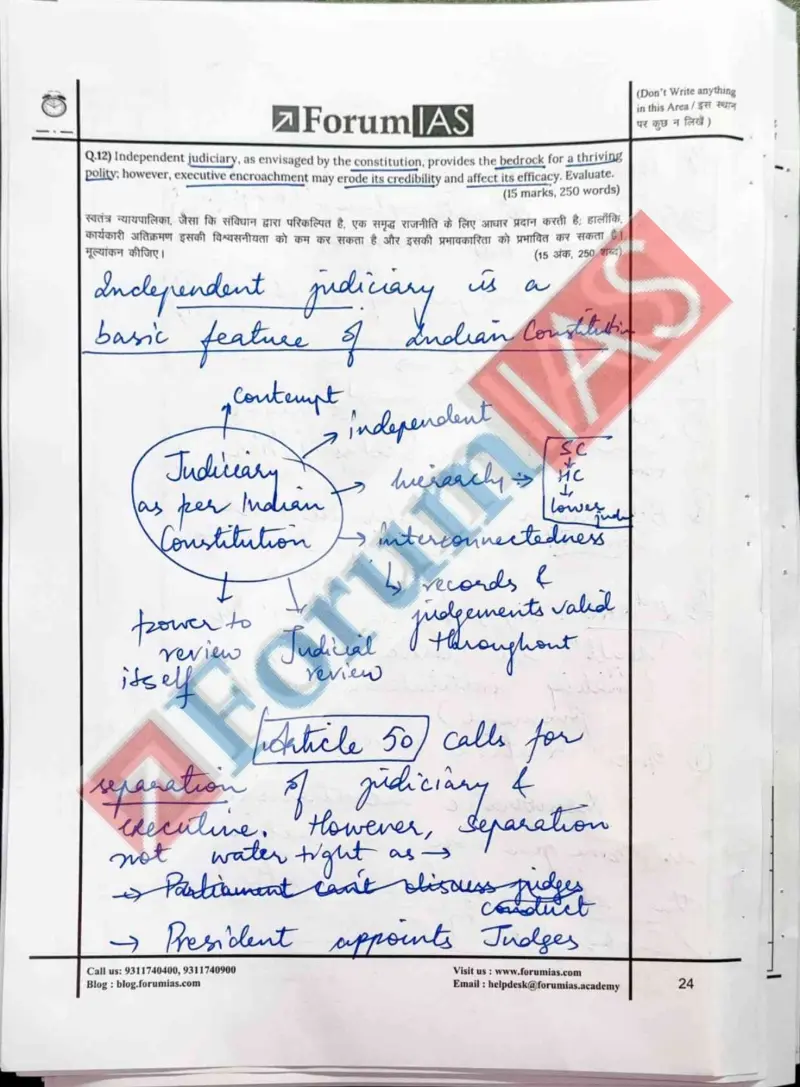 (Don't Write anything
in this Area / इस स्थान
पर कुछ न लिखें )
ForumIAS
Q.12) Independent judiciary, as envisaged by the constitution, provides the bedrock for a thriving
polity; however, executive encroachment may erode its credibility and affect its efficacy. Evaluate.
(15 marks, 250 words)
स्वतंत्र न्यायपालिका, जैसा कि संविधान द्वारा परिकल्पित है, एक समृद्ध राजनीति के लिए आधार प्रदान करती है; हालाँकि,
कार्यकारी अतिक्रमण इसकी विश्वसनीयता को कम कर सकता है और इसकी प्रभावकारिता को प्रभावित कर सकता है।
मूल्यांकन कीजिए।
(15 अंक, 250 शब्द)
Independent judiciary is a
basic feature of Indian Constitution
Contempt
independent
Judiciary
as per Indian
Constitution
hierarchy →
SC
↓
HC
↓
lower
judi
interconnectedness
↳ records &
judgements valid
throughout
power to
review
itself
Judicial
review
Article 50 calls for
separation of judiciary &
executive. However, separation
not water tight as →
→ Parliament can't discuss judges
conduct
→ President appoints Judges
ForumIAS
Call us: 9311740400, 9311740900
Blog : blog.forumias.com
Visit us : www.forumias.com
Email : helpdesk@forumias.academy
24